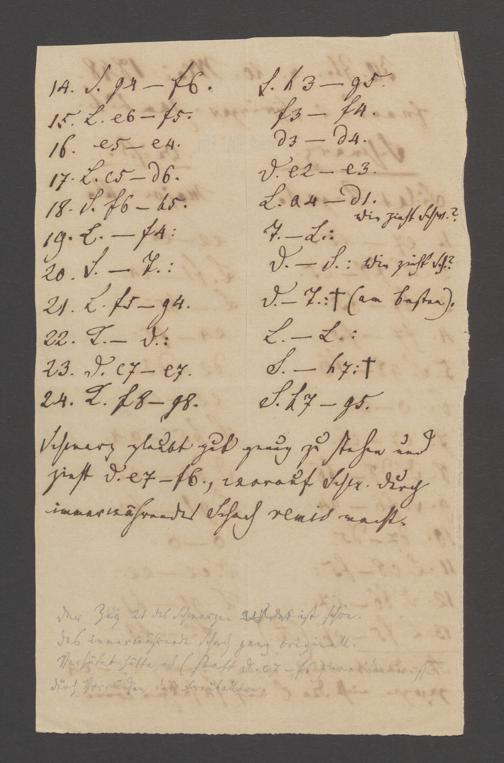 14. S. g4 — f6. S. h3 — g5.
15. L. e6 — f5. f3 — f4.
16. e5 — e4. d3 — d4.
17. L. c5 — d6. D. e2 — e3.
18. S. f6 — h5. L. a4 — d1.
wie zieht Schw.?
19. L. — f4: T. — L.:
20. S. — T.: D. — S.: wie zieht Sch?
21. L. f5 — g4. D. — T.:† (am besten).
22. L. — D.: L. — L.:
23. D. c7 — e7. S. — h7:†
24. T. f8 — g8. S. h7 — g5.
Schwarz glaubt gut genug zu stehen und
zieht D. e7 — f6., worauf Schw. durch
immerwährendes Schach remis macht.
Der Zug 21 des Schwarzen ist schön.
das immerwährende Schach ganz originell.
(statt D. e7 — f6
durch